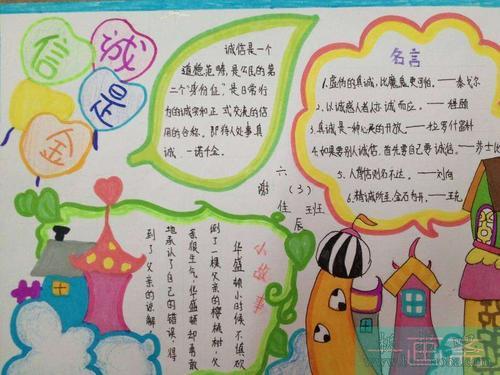 诚
信
是
金
诚信是一个
道德范畴,是公民的第
二个"身份证",是日常行
为的诚实和正式交流的信
用的合称。即待人处事真
诚、一诺千金。
名言
1.虚伪的真诚,比魔鬼更可怕。——泰戈尔
2.以诚感人者,人亦诚而应。——程颐
3.真诚是一种心灵的开放。——拉罗什富科
4.如果要别人诚信,首先要自己要诚信。——莎士比
5.人背信则名不达。——刘向
6.精诚所至,金石为开。——王充
六(3)班
谢佳辰
小故事
华盛顿小时候不慎砍
倒了一棵父亲的樱桃树,父
亲很生气,华盛顿却勇敢
地承认了自己的错误,得
到了父亲的谅解